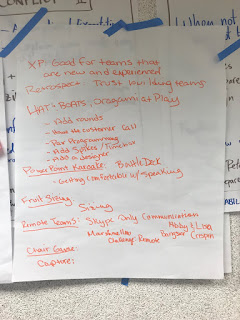 CONFLICT II
When not
XP: Good for teams that
are new and experienced
Retrospect: Trust building teams
HATS + BOATS: Oragami at Play
- Add rounds
- Have the customer call
- Pair Programming
- Add Spikes / Timebox
- Add a designer
PowerPoint Karaoke: BattleDeck
- Getting comfortable w/ speaking
Fruit Sizing:
Sizing
Remote Teams: Skype Only Communication
Marshmallow
Challenge: Remote
Abby & Lisa
Crispin
Chair Game:
Capture: